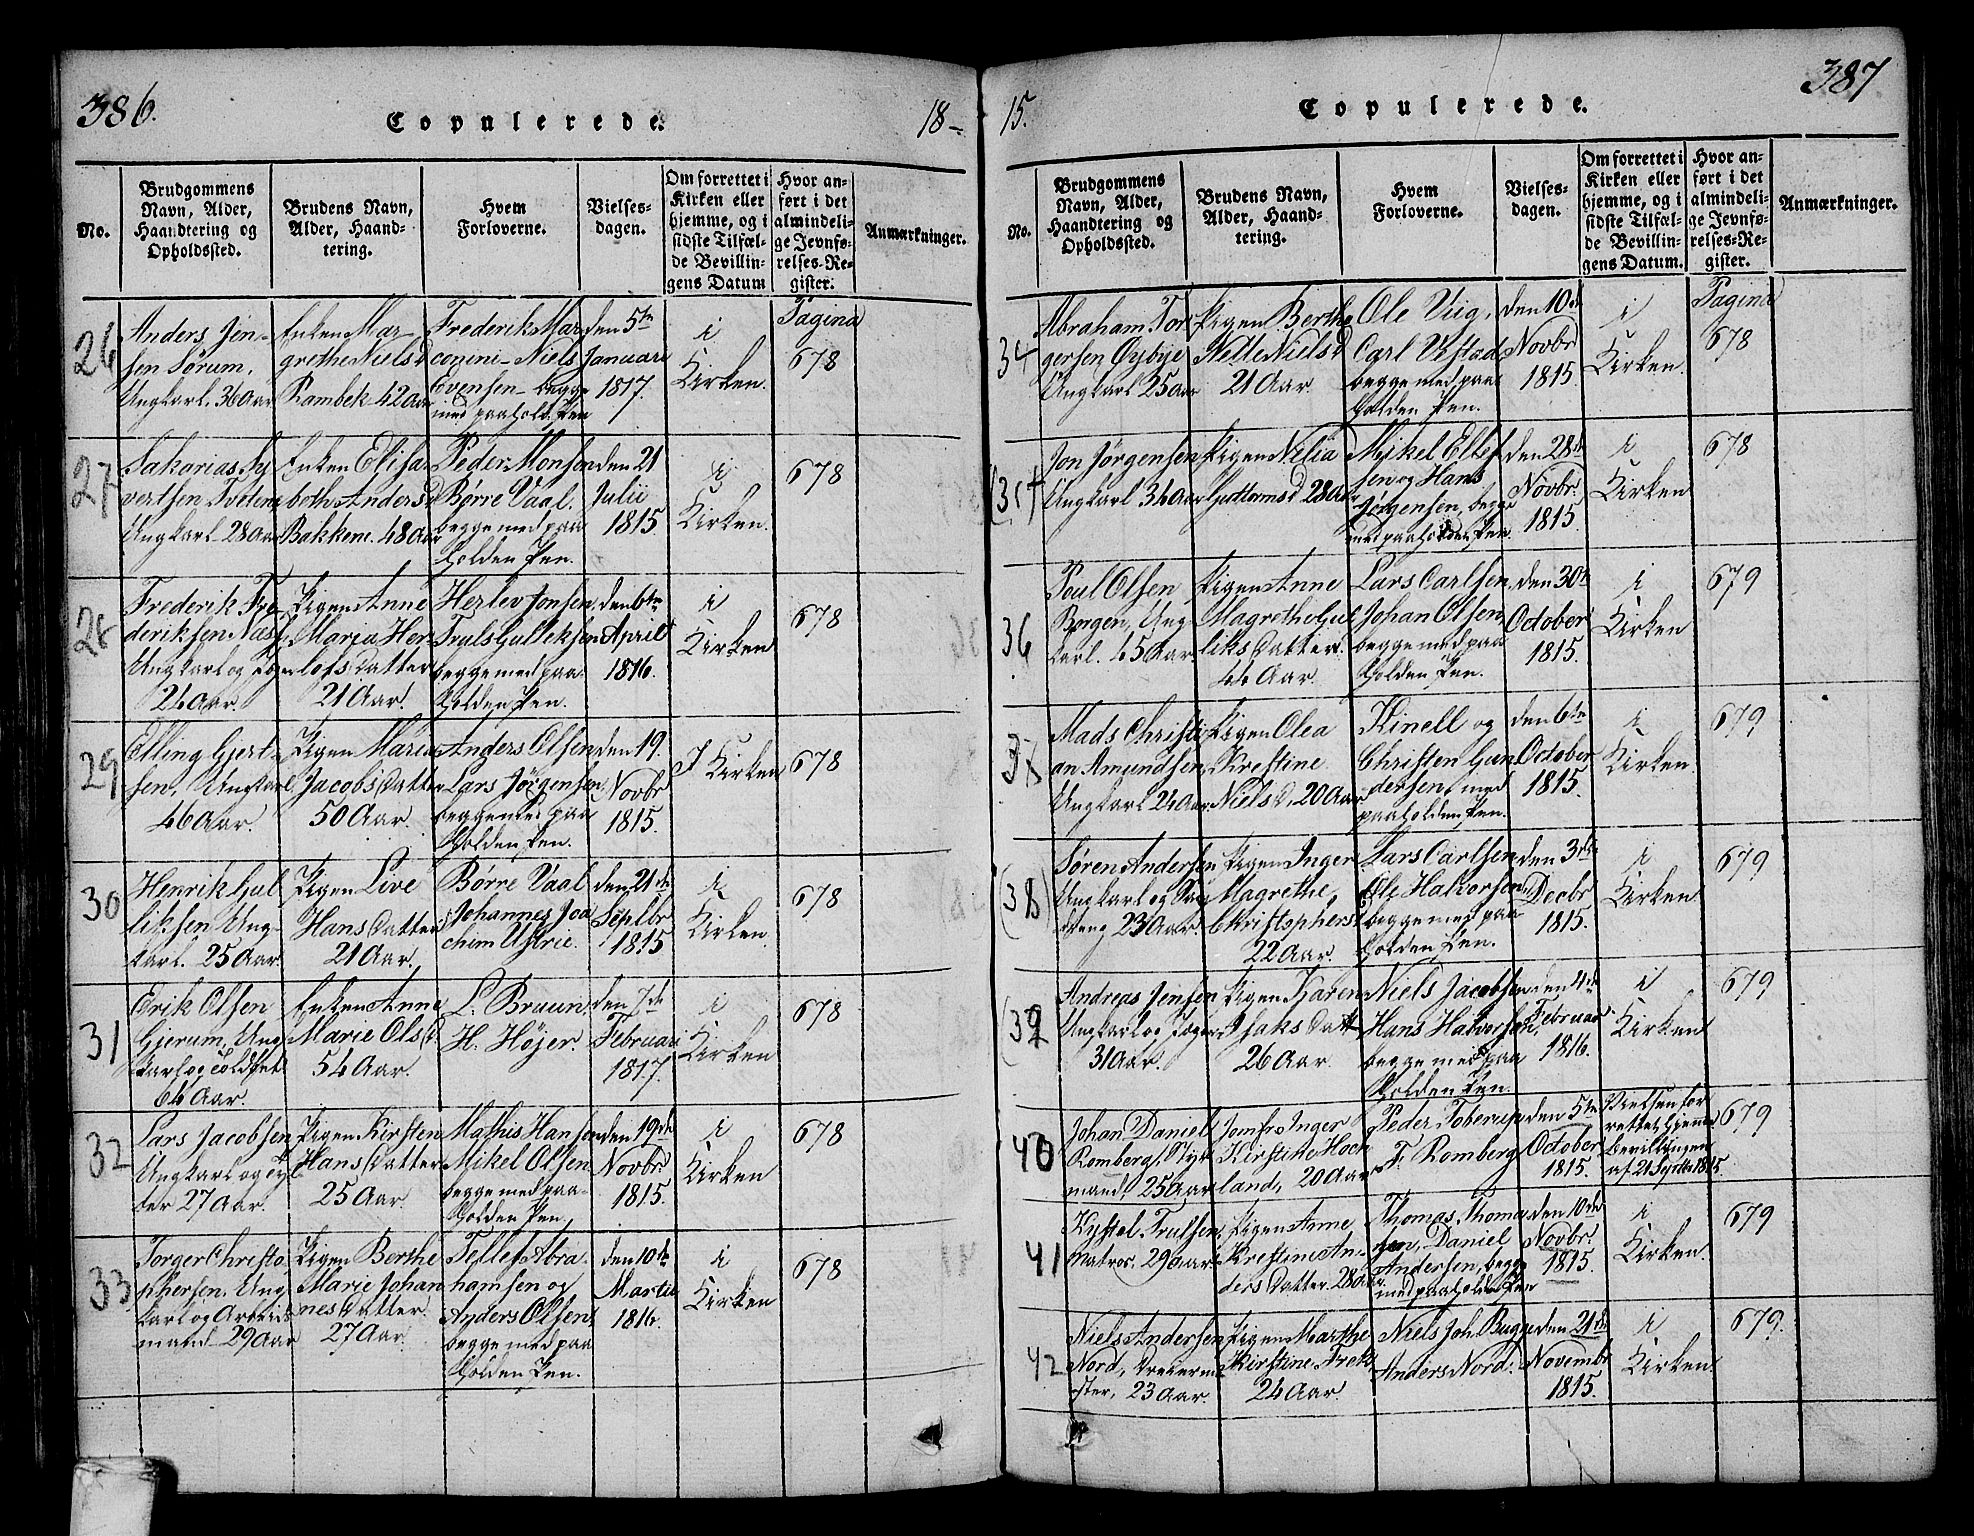 386.
Copulerede.
18-
No.
Brudgommens Navn, Alder, Haandtering og Opholdssted.
Brudens Navn, Alder, Haandtering.
Hvem Forloverne.
Vielsesdagen.
Om forrettet i Kirken eller hjemme, og i sidste Tilfælde Bevillingens Datum
Hvor anført i det almindelige Jevnførelses-Register.
Anmærkninger.
Pagina
26
Anders Jen-
sen Sørum,
Ungkarl. 36 Aar
Enken Mar-
grethe Niels D
Rambek 42 Aar
Frederik Mar
conini - Niels
Evensen - begge
med paahold. Pen
den 5te
Januari
1817.
i
Kirken.
678
27
Sakarias Sy
vertsen Tvetene
Ungkarl 28 Aar
Enken Elisa
beth Anders D
Bakkene. 48 Aar
Peder Monsen
Børre Vaal.
begge med paa
Holden Pen.
den 21
Julii
1815
i
Kirken.
678
28
Frederik Fre
deriksen Næss
Ungkarl og
24 Aar.
Pigen Anne
Maria Her-
lofs Datter
21 Aar.
Herlev Jonsen
Truls Gulleksen
begge med paa
Holden Pen.
den 6te
April
1816.
i
Kirken
678
29
Elling Gjert-
sen, Ungkarl
46 Aar.
Pigen Maria
Jacobs Datter
50 Aar.
Anders Olsen
Lars Jørgensen
begge med paa
Holden Pen.
den 19.
Novbr
1815.
I Kirken
678
30
Henrik Gul
liksen Ung-
karl. 25 Aar.
Pigen Live
Hans Datter
21 Aar.
Børre Vaal
Johannes Joa
chim Ustrie.
den 21de
Septbr
1815
i
Kirken.
678
31
Erik Olsen
Gjerum, Ung
karl og
64 Aar.
Enken Anne
Marie Ols D.
54 Aar.
L. Braun
H. Højer.
den 7de
Februari
1817.
i
Kirken
678
32
Lars Jacobsen
Ungkarl og
27 Aar.
Pigen Kirsten
Hans Datter
25 Aar.
Mathis Hansen
Mikel Olsen
begge med paa-
Holden Pen.
den 19de
Novbr
1815.
i
Kirken
678
33
Torger Christo
phersen. Ung
karl og Arbeids
mand 29 Aar
Pigen Berthe
Marie Johan
nes Datter.
27 Aar.
Tellef Abra
hamsen og
Anders Olsen
begge med paa
Holden Pen.
den 10de
Martii
1816.
i
Kirken
678
15.
Copulerede.
387
No.
Brudgommens Navn, Alder, Haandtering og Opholdssted.
Brudens Navn, Alder, Haandtering.
Hvem Forloverne.
Vielsesdagen.
Om forrettet i Kirken eller hjemme, og i sidste Tilfælde Bevillingens Datum.
Hvor anført i det almindelige Jevnførelses-Register.
Anmærkninger.
Pagina
34
Abraham Tor
gersen Øybye
Ungkarl 25 Aar
Pigen Berthe
Nelle Niels D
21 Aar.
Ole Viig,
Carl Vestad
begge med paa
Holden Pen.
den 10de
Novbr
1815.
i
Kirken.
678
35
Jon Jørgensen
Ungkarl 34 Aar
Pigen Nelia
Guttorms D 28 Aar
Mikel Ellef
sen og Hans
Jørgensen, begge
med paaholden Pen.
den 28de
Novbr.
1815.
i
Kirken
678
36
Poul Olsen
Borgen, Ung
karl. 45 Aar.
Pigen Anne
Magrethe Gul
liks Datter.
44 Aar.
Lars Carlsen
Johan Olsen
begge med paa
Holden Pen.
den 30te
October
1815.
i
Kirken
679
37
Mads Christi
an Amundsen
Ungkarl 24 Aar
Pigen Olea
Krestine
Niels D, 20 Aar
Kinell og
Christen Gun
dersen, med
paaholden Pen.
den 6te
October
1815.
i
Kirken.
679
38
Søren Andersen
Ungkarl og
23 Aar.
Pigen Inger
Magrethe,
Christophers D
22 Aar.
Lars Carlsen
Ole Halvorsen
begge med paa
Holden Pen.
den 3die
Decbr
1815.
i
Kirken.
679
39
Andreas Jensen
Ungkarl og
31 Aar.
Pigen Karen
Isaks Datt
26 Aar.
Niels Jacobsen
Hans Halvorsen,
begge med paa
Holden Pen.
den 4de
Februar
1816.
i
Kirken
679
40
Johan Daniel
Romberg, Styr
mand 25 Aar
Jomfr Inger
Kirstine Hoch
land, 20 Aar
Peder Toberup
F. Romberg
den 5te
October
1815.
Vielsen for
rettet Hjemme
Bevillingen
af 21 Septbr 1815.
679
41
Kystel Trulsen,
Matros. 29 Aar.
Pigen Anne
Krestine An-
ders Datter 28 Aar
Thomas Thoma
sen, Daniel
Andersen, begge
med paaholden Pen
den 10de
Novbr.
1815.
i
Kirken.
679
42
Niels Andersen
Nord, Dreierme
ster, 23 Aar.
Pigen Marthe
Kirstine Freks
24 Aar.
Niels Joh. Bugge
Anders Nord.
den 21de
Novembr
1815.
i
Kirken.
679.